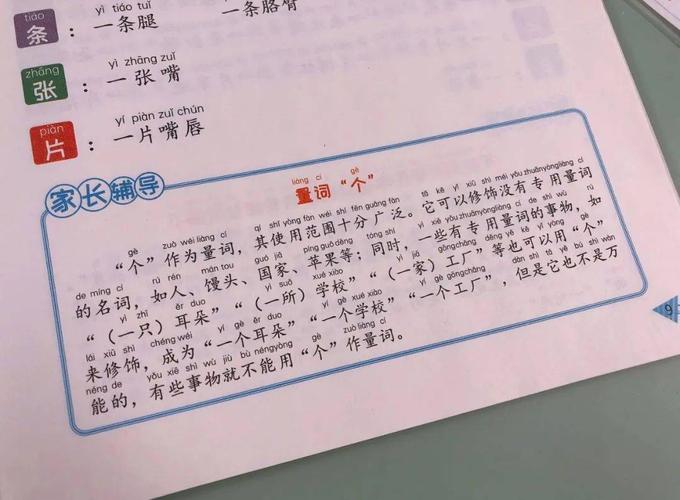 tiáo yì tiáo tuǐ
条：一条腿 一条胳臂
zhāng yì zhāng zuǐ
张：一张嘴
piàn yí piàn zuǐ chún
片：一片嘴唇
家长辅导
liàng cí gè
量词“个”
gè zuò wéi liàng cí qí shǐ yòng fàn wéi shí fēn guǎng fàn tā kě yǐ xiū shì méi yǒu zhuān yòng liàng cí
“个”作为量词，其使用范围十分广泛。它可以修饰没有专用量词
de míng cí rú rén mán tou guó jiā píng guǒ děng tóng shí yì xiē yǒu zhuān yòng liàng cí de shì wù rú
的名词，如人、馒头、国家、苹果等；同时，一些有专用量词的事物，如
yì zhī ěr duo yì suǒ xué xiào yì jiā gōng chǎng děng yě kě yǐ yòng gè
“（一只）耳朵”“（一所）学校”“（一家）工厂”等也可以用“个”
lái xiū shì chéng wéi yí gè ěr duo yí gè xué xiào yí gè gōng chǎng dàn shì tā yě bú shì wàn
来修饰，成为“一个耳朵”“一个学校”“一个工厂”，但是它也不是万
néng de yǒu xiē shì wù jiù bù néng yòng gè zuò liàng cí
能的，有些事物就不能用“个”作量词。